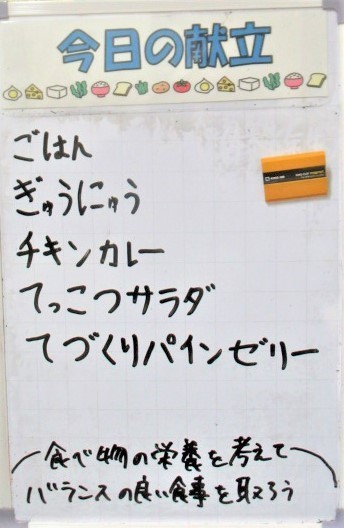 今日の献立
ごはん
ぎゅうにゅう
チキンカレー
てっこつサラダ
てづくりパインゼリー
食べ物の栄養を考えて
バランスの良い食事を取ろう